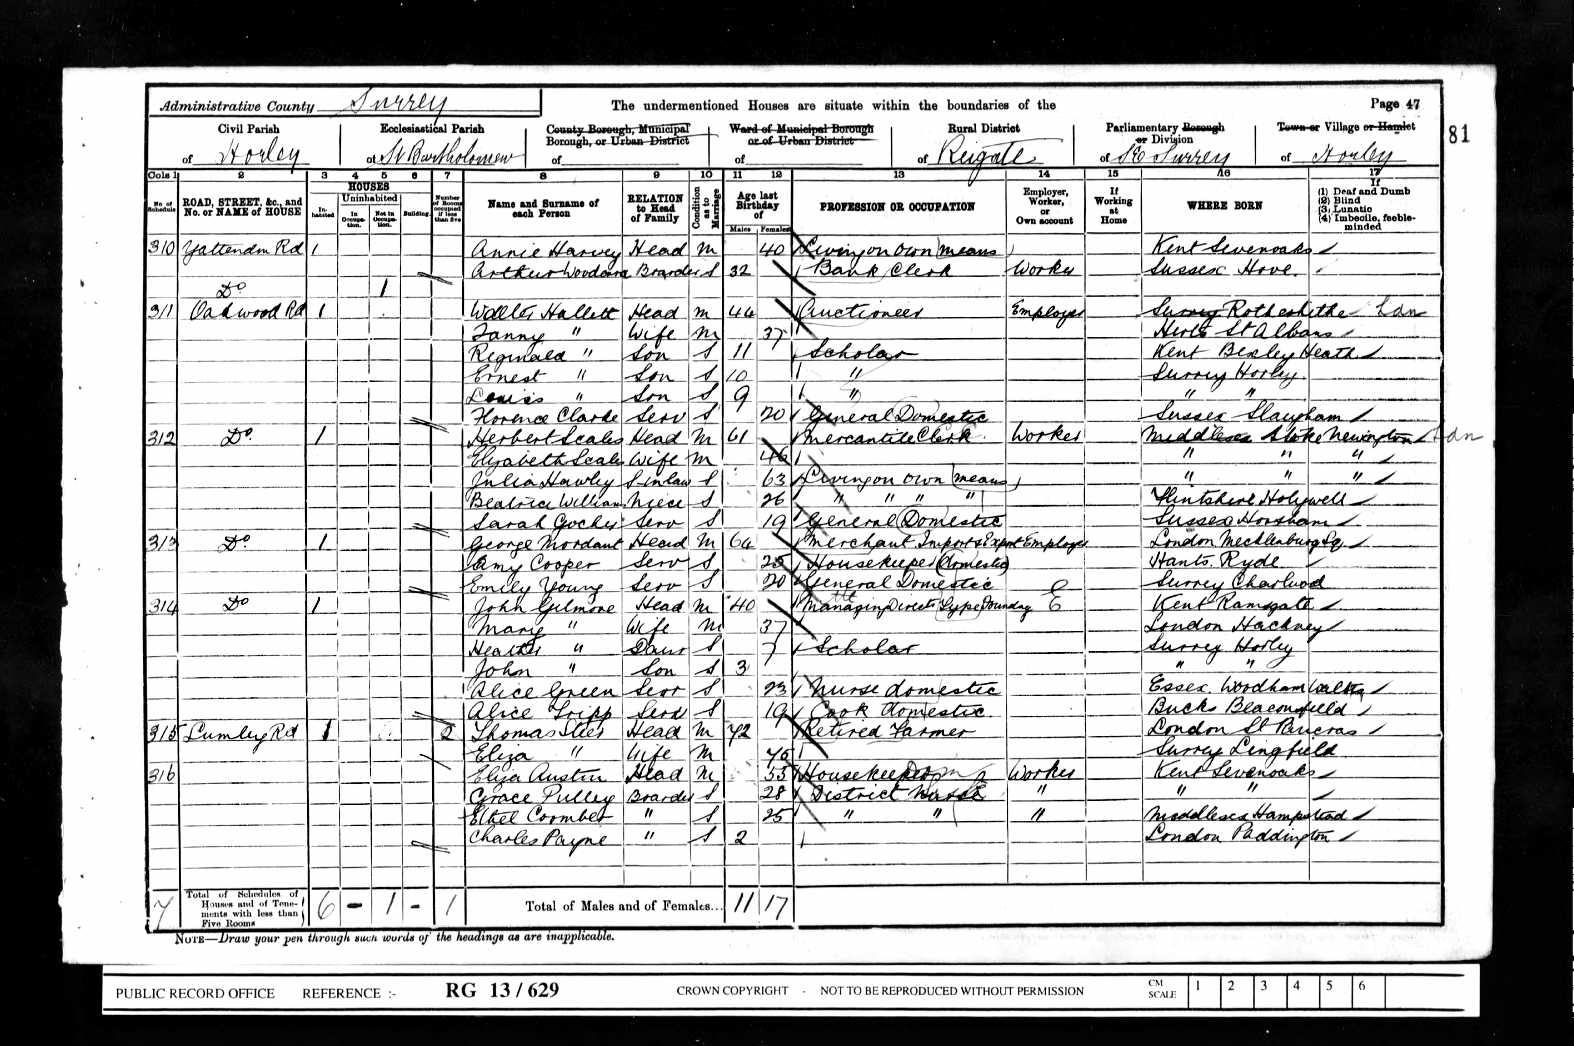 Administrative County Surrey
The undermentioned Houses are situate within the boundaries of the
Page 47
81
Civil Parish of Horley
Ecclesiastical Parish of St Bartholomew
County Borough, Municipal Borough, or Urban District of
Ward of Municipal Borough or of Urban District of
Rural District of Reigate
Parliamentary Borough or Division of SE Surrey
Town or Village or Hamlet of Horley
Cols 1 2 3 4 5 6 7 8 9 10 11 12 13 14 15 16 17
No. of Schedule
ROAD, STREET, &c., and No. or NAME of HOUSE
HOUSES
Inhabited
Uninhabited
In Occupation.
Not in Occupation.
Building.
Number of Rooms occupied if less than five
Name and Surname of each Person
RELATION to Head of Family
Condition as to Marriage
Age last Birthday of
Males Females
PROFESSION OR OCCUPATION
Employer, Worker, or Own account
If Working at Home
WHERE BORN
If (1) Deaf and Dumb (2) Blind (3) Lunatic (4) Imbecile, feeble-minded
310 Yattendon Rd 1 Annie Harvey Head M 40 Living on own means Kent Sevenoaks
Arthur Boarder S 32 Bank Clerk Worker Sussex Hove
Do 1
311 Oakwood Rd 1 Walter Hallett Head M 44 Auctioneer Employer Surrey Rotherhithe Lon
Fanny " Wife M 37 Herts St Albans
Reginald " Son S 11 Scholar Kent Bexley Heath
Ernest " Son S 10 " Surrey Horley
Louis " Son S 9 " " "
Florence Clarke Serv S 20 General Domestic Sussex Slaugham
312 Do. 1 Herbert Scales Head M 61 Mercantile Clerk Worker Middlesex Stoke Newington Lon
Elizabeth Scales Wife M 46 " " "
Julia Hawley S in law S 63 Living on own means " " "
Beatrice William Niece S 26 " " " " Flintshire Holywell
Sarah Serv S 19 General Domestic Sussex Horsham
313 Do 1 George Mordaunt Head M 64 Merchant Import & Export Employer London Mecklenburg Sq
Amy Cooper Serv S 25 Housekeeper (domestic) Hants. Ryde
Emily Young Serv S 20 General Domestic Surrey Charlwood
314 Do 1 John Gilmore Head M 40 Managing Director Type Foundry E Kent Ramsgate
Mary " Wife M 37 London Hackney
Heather " Daur S 7 Scholar Surrey Horley
John " Son S 3 " "
Alice Green Serv S 23 Nurse domestic Essex. Woodham Walter
Alice Tripp Serv S 19 Cook domestic Bucks Beaconsfield
315 Lumley Rd 1 2 Thomas Head M 72 Retired Farmer London St Pancras
Eliza " Wife M 75 Surrey Lingfield
316 Eliza Austin Head M 55 Housekeeper Dom Worker Kent Sevenoaks
Grace Pulley Boarder S 28 District Nurse " " "
Ethel Coomber " S 25 " " " Middlesex Hampstead
Charles Payne " S 2 London Paddington
7 Total of Schedules of Houses and of Tenements with less than Five Rooms 6 - 1 - 1 Total of Males and of Females... 11 17
NOTE—Draw your pen through such words of the headings as are inapplicable.
PUBLIC RECORD OFFICE REFERENCE :- RG 13/629 CROWN COPYRIGHT - NOT TO BE REPRODUCED WITHOUT PERMISSION CM SCALE 1 2 3 4 5 6